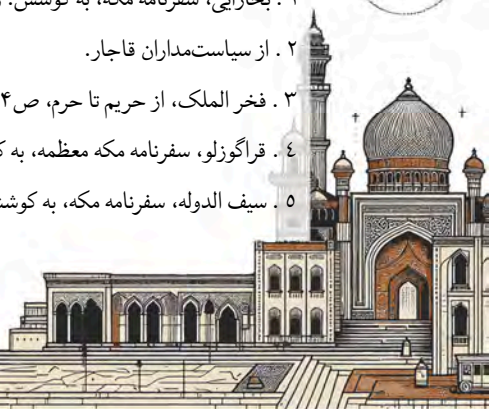 ۱ . بخارایی، سفرنامه مکه، به کوشش:
۲ . از سیاست‌مداران قاجار.
۳ . فخر الملک، از حریم تا حرم، ص۴
٤ . قراگوزلو، سفرنامه مکه معظمه، به
۵ . سیف الدوله، سفرنامه مکه، به